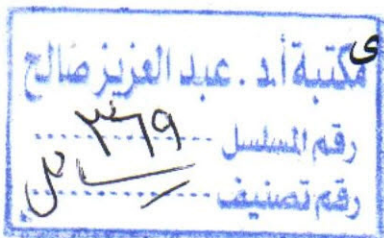 مكتبة أ.د. عبد العزيز صالح
رقم المسلسل ٣٤٦٩
رقم تصنيف